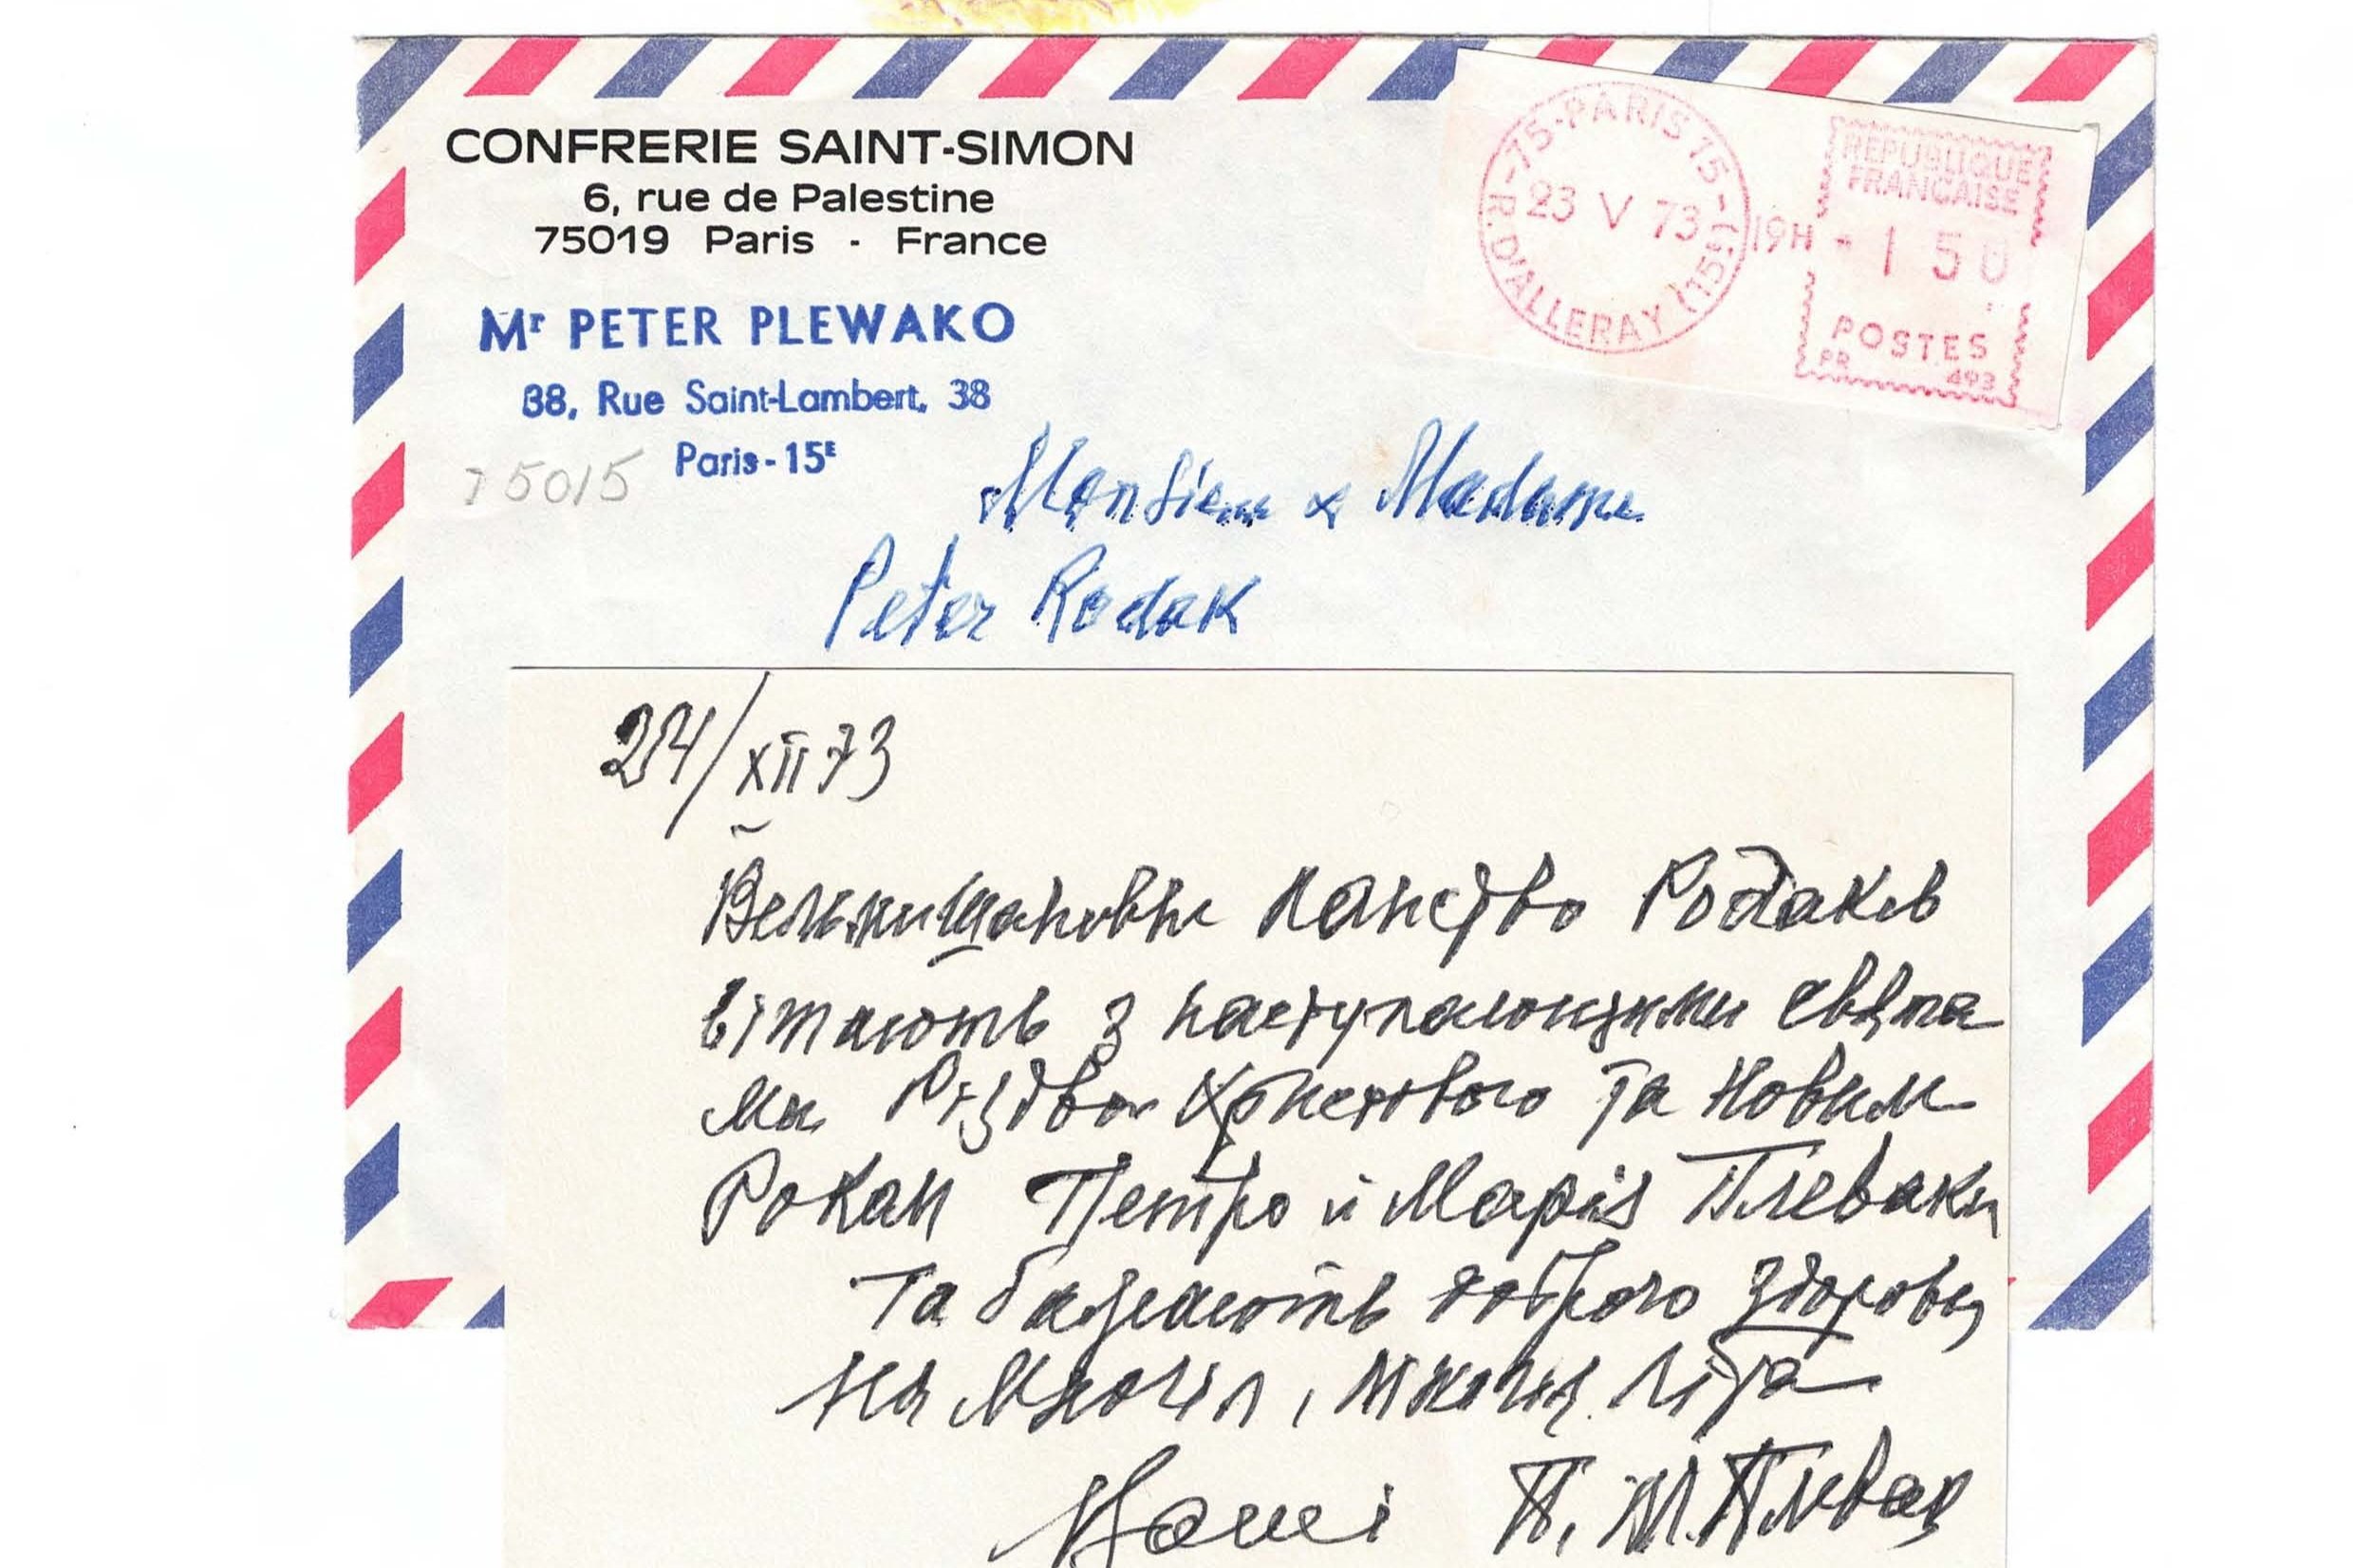 CONFRERIE SAINT-SIMON
6, rue de Palestine
75019 Paris - France
Mr PETER PLEWAKO
38, Rue Saint-Lambert, 38
Paris-15E
75015
75-PARIS 15-R. D'ALLERAY (15E)
23 V 73
19H
REPUBLIQUE
FRANÇAISE
150
POSTES
PR 493
Monsieur & Madame
Peter Rodak
24/XII 73
Вельмишановне Панство Родаків
вітають з наступаючими свята
ми Різдва Христового та Новим
Роком Петро й Марія Плеваки
та бажають доброго здоровя
на Многія, Многія Літа
П. М. Плевак